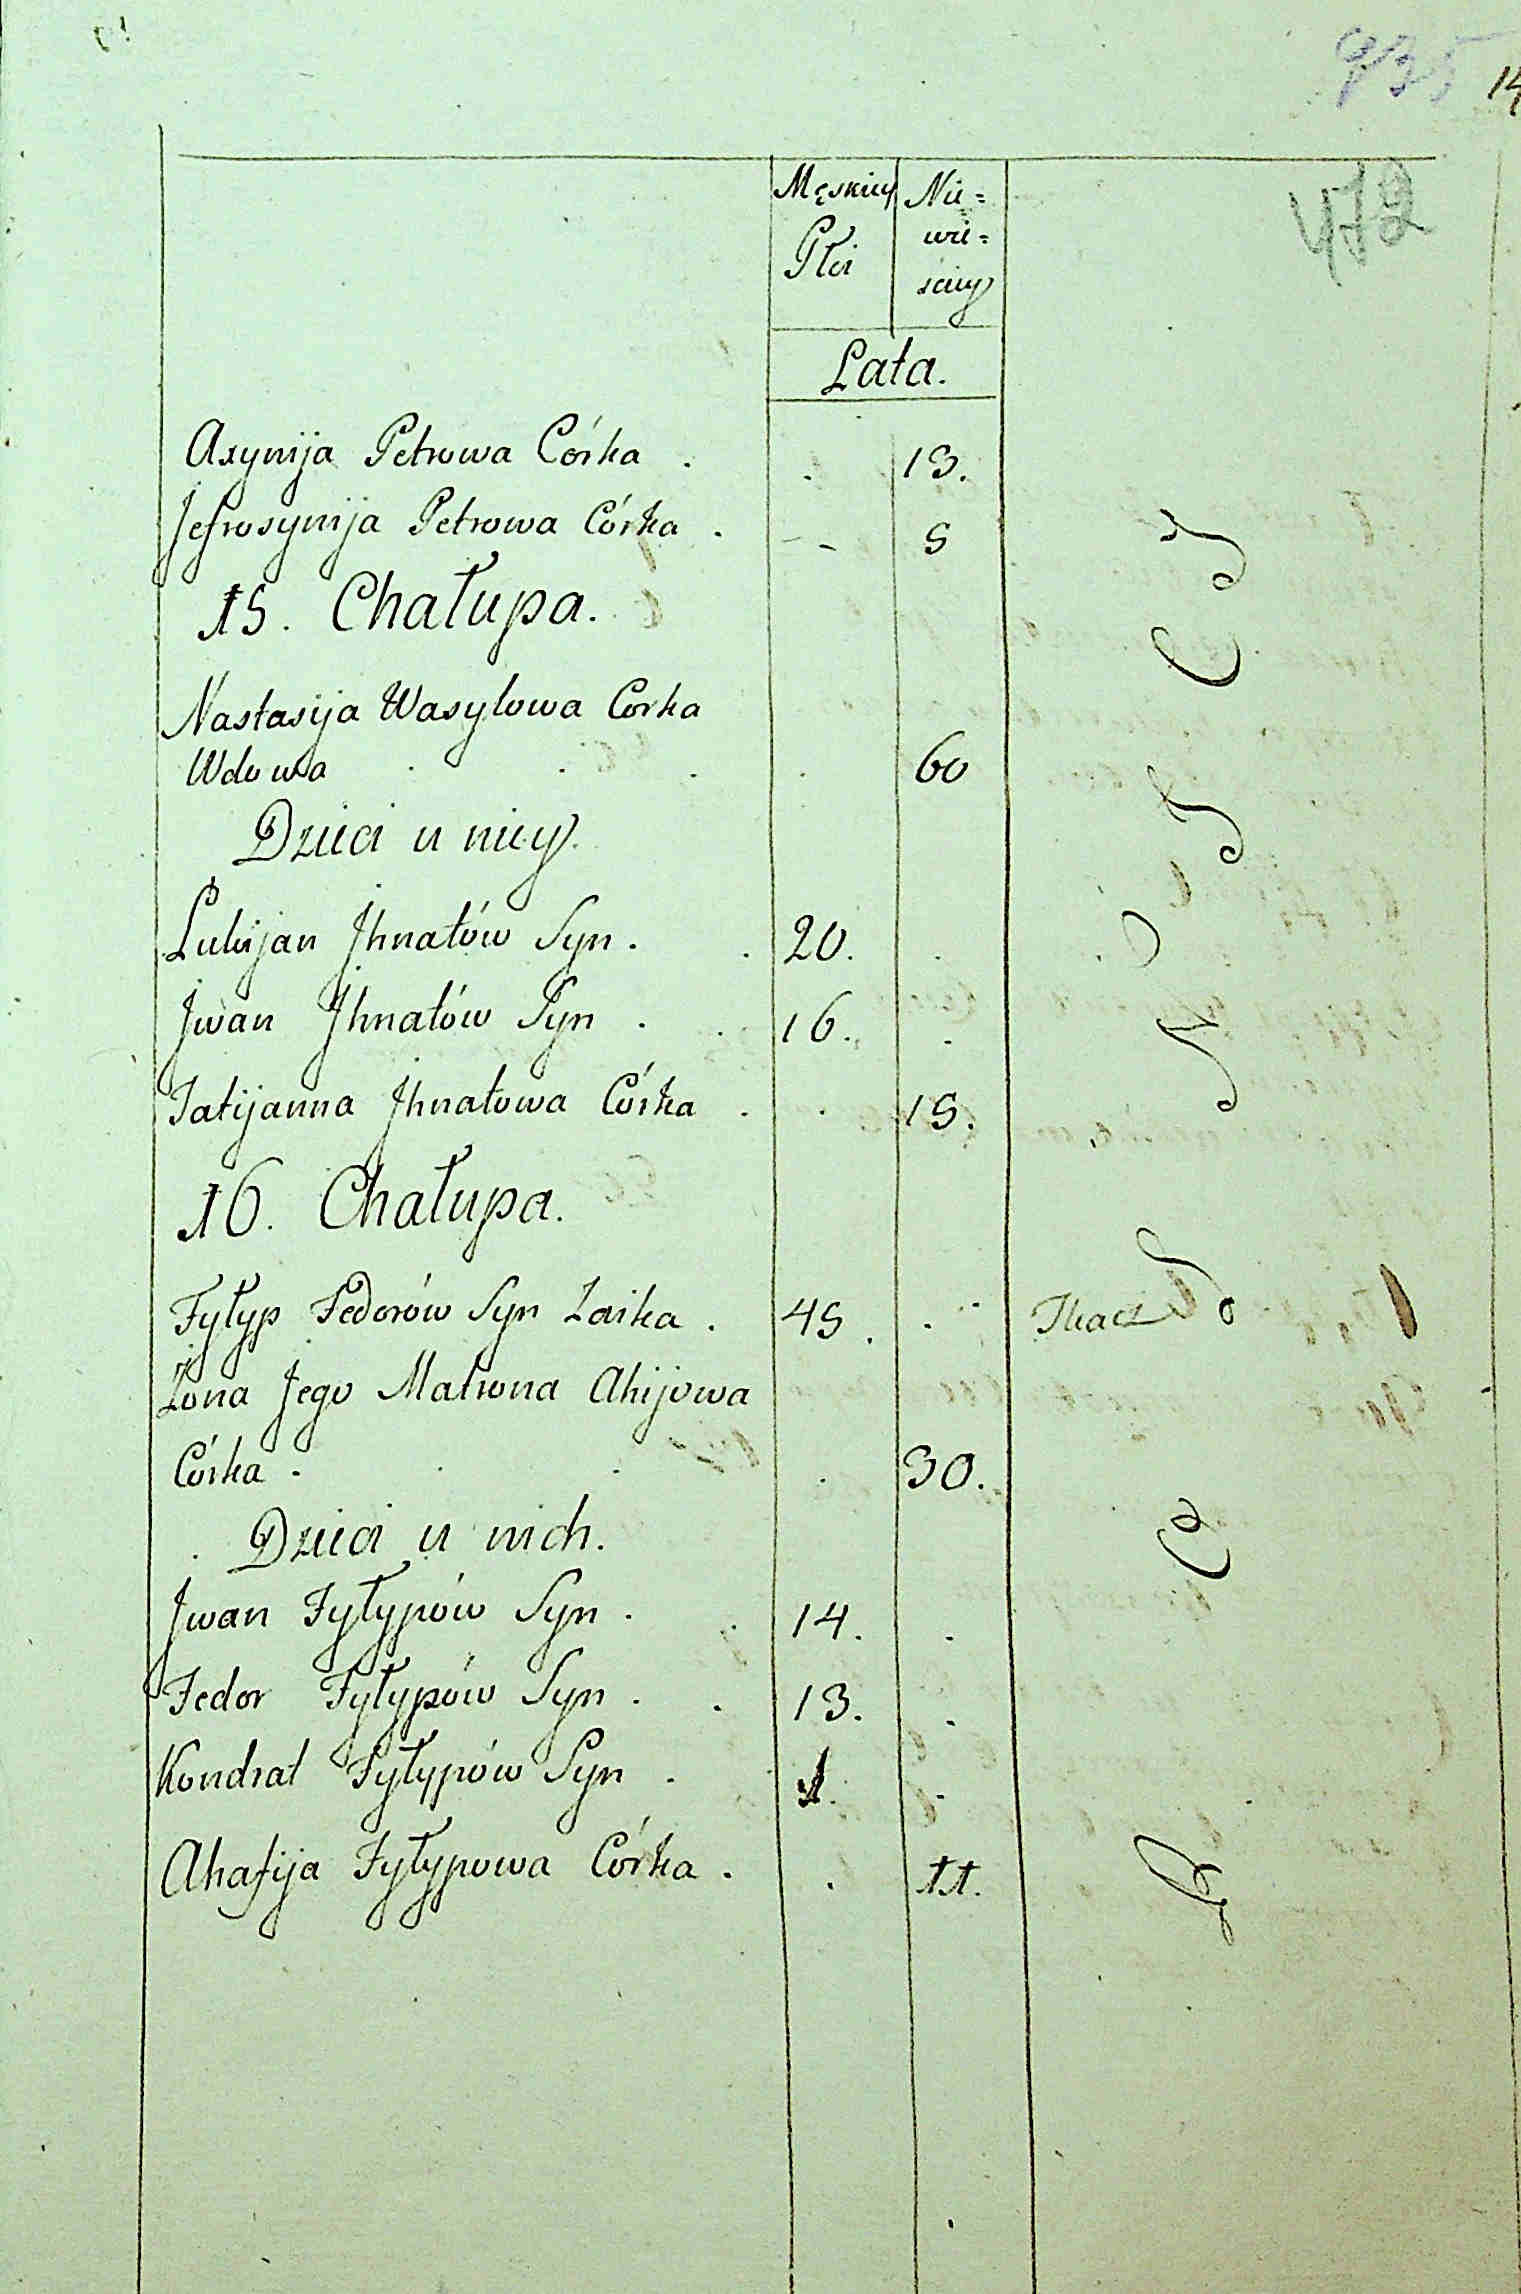 935 14
472
Męskiey Nie=
Płci wie=
ściey
Lata.
Axynija Petrowa Córka . . 13.
Jefrosynija Petrowa Córka . - - 5
15. Chałupa.
Nastasija Wasylowa Corka
Wdowa . . . . 60
Dzieci u niey.
Lukijan Jhnatów Syn . . 20. .
Jwan Jhnatów Syn . . 16. .
Tatijanna Jhnatowa Córka . . 15.
16. Chałupa.
Fyłyp Fedorów Syn . 45. . Tkacz
Żona Jego Matrona Ahijowa
Córka . . . . 30.
. Dzieci u nich.
Jwan Fyłypów Syn . . 14. .
Fedor Fyłypów Syn . . 13. .
Kondrat Fyłypów Syn . 1. .
Ahafija Fyłypowa Córka . . 11.